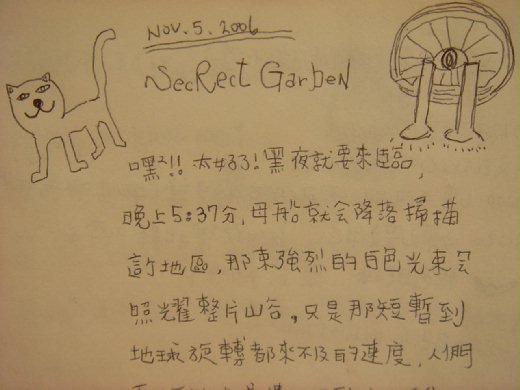 NOV. 5. 2006
SecRect GarDeN
嘿!! 太好了!黑夜就要來臨,
晚上5:37分,母船就会降落掃描
訪地區,那束強烈的白色光束会
照耀整片山谷,只是那短暫到
地球旋轉都來不及的速度,人們